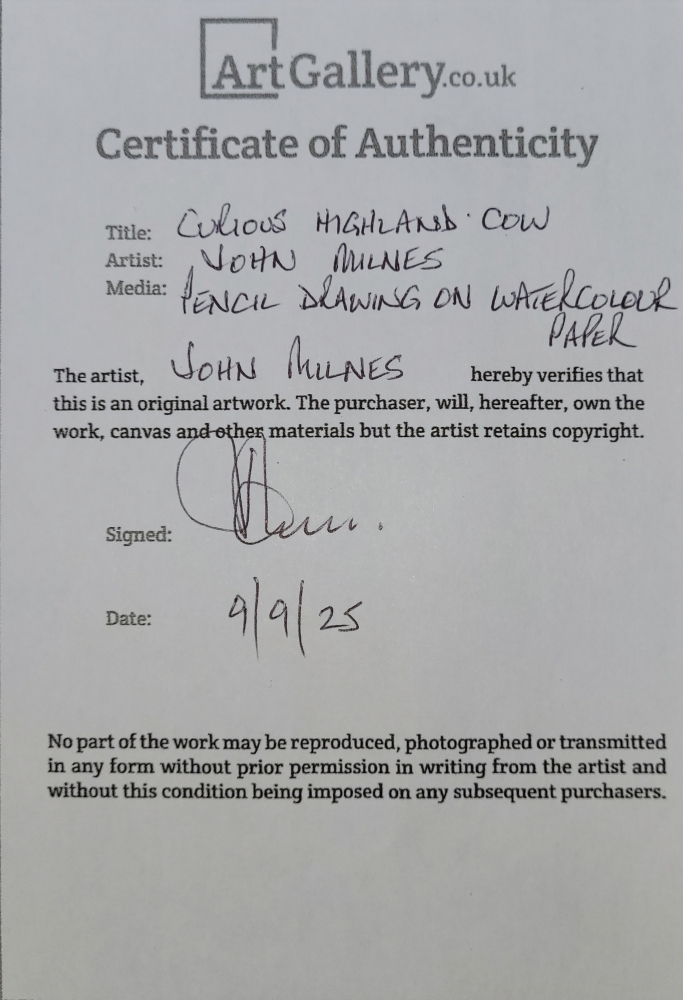 ArtGallery.co.uk
Certificate of Authenticity
Title: CURIOUS HIGHLAND COW
Artist: JOHN MILNES
Media: PENCIL DRAWING ON WATERCOLOUR
PAPER
The artist, JOHN MILNES hereby verifies that
this is an original artwork. The purchaser, will, hereafter, own the
work, canvas and other materials but the artist retains copyright.
Signed:
Date: 9/9/25
No part of the work may be reproduced, photographed or transmitted
in any form without prior permission in writing from the artist and
without this condition being imposed on any subsequent purchasers.